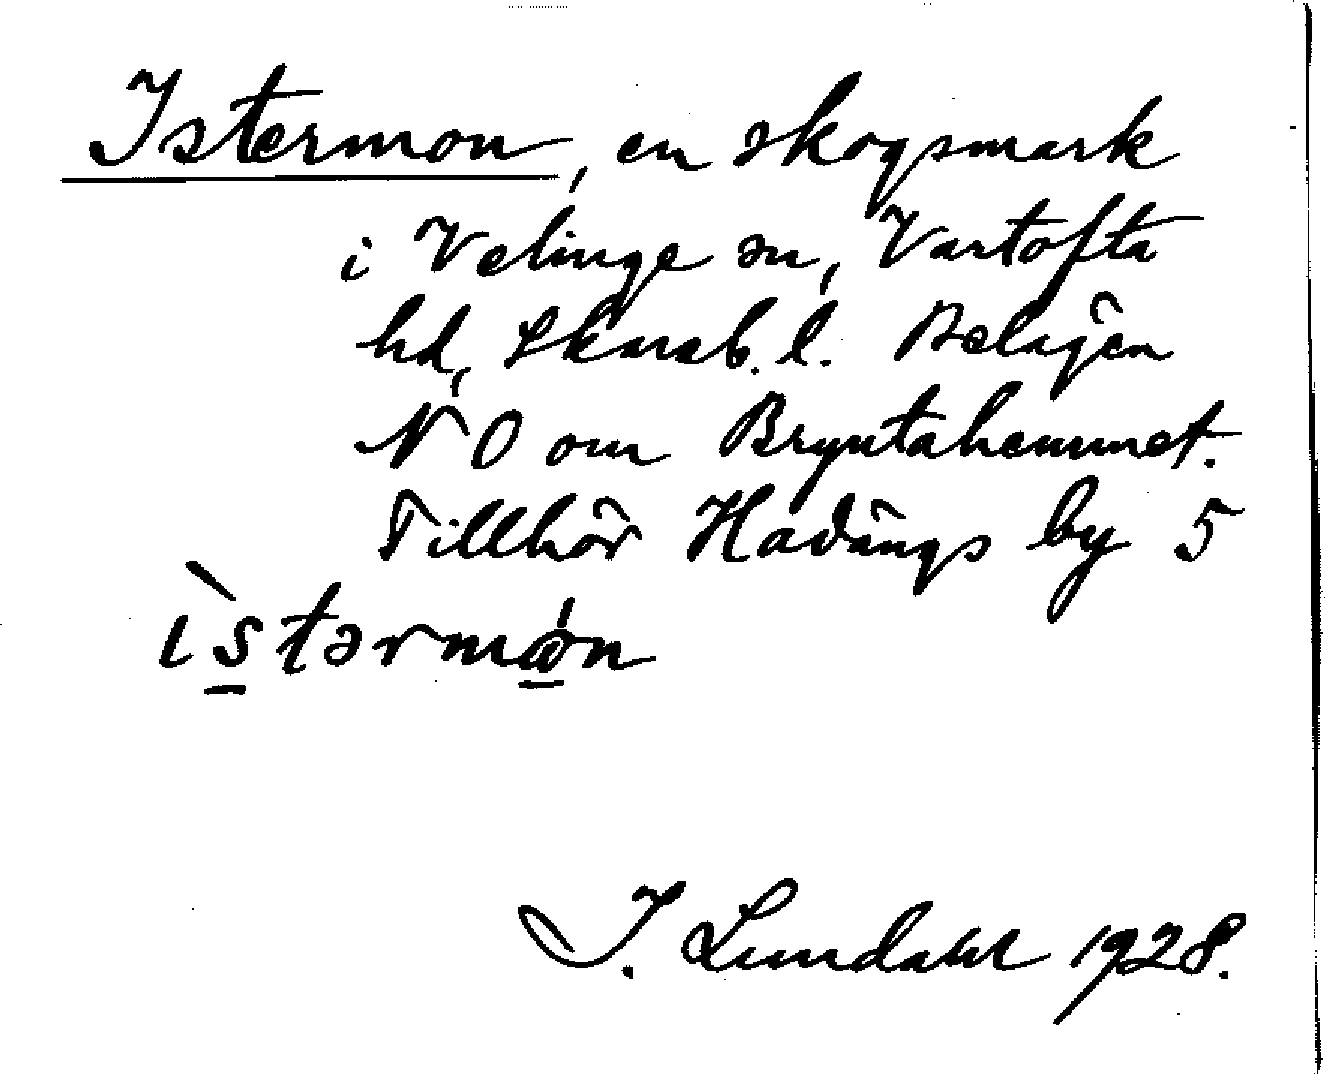 Istermon, en skogsmark
i Velinge sn, Vartofta
hd, Skarab. l. Belägen
N O om Bryntahemmet.
Tillhör Hadängs by 5
ìstərmón
I. Lundahl 1928.